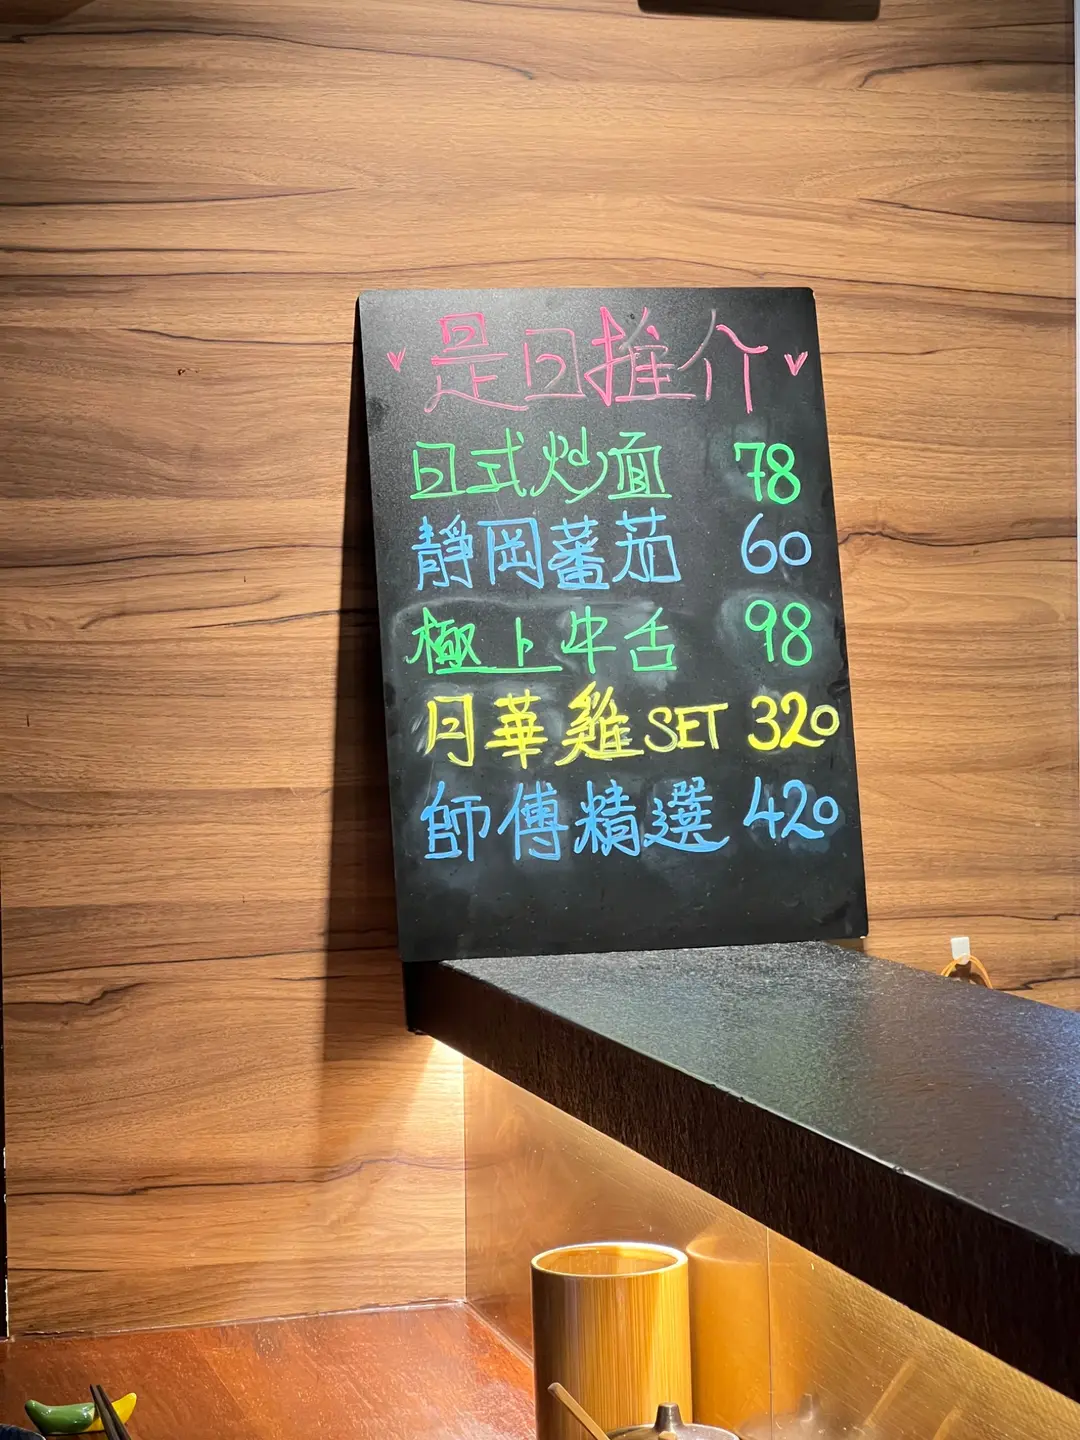 是日推介
日式炒面 78
靜岡蕃茄 60
極上牛舌 98
月華雞 SET 320
師傅精選 420